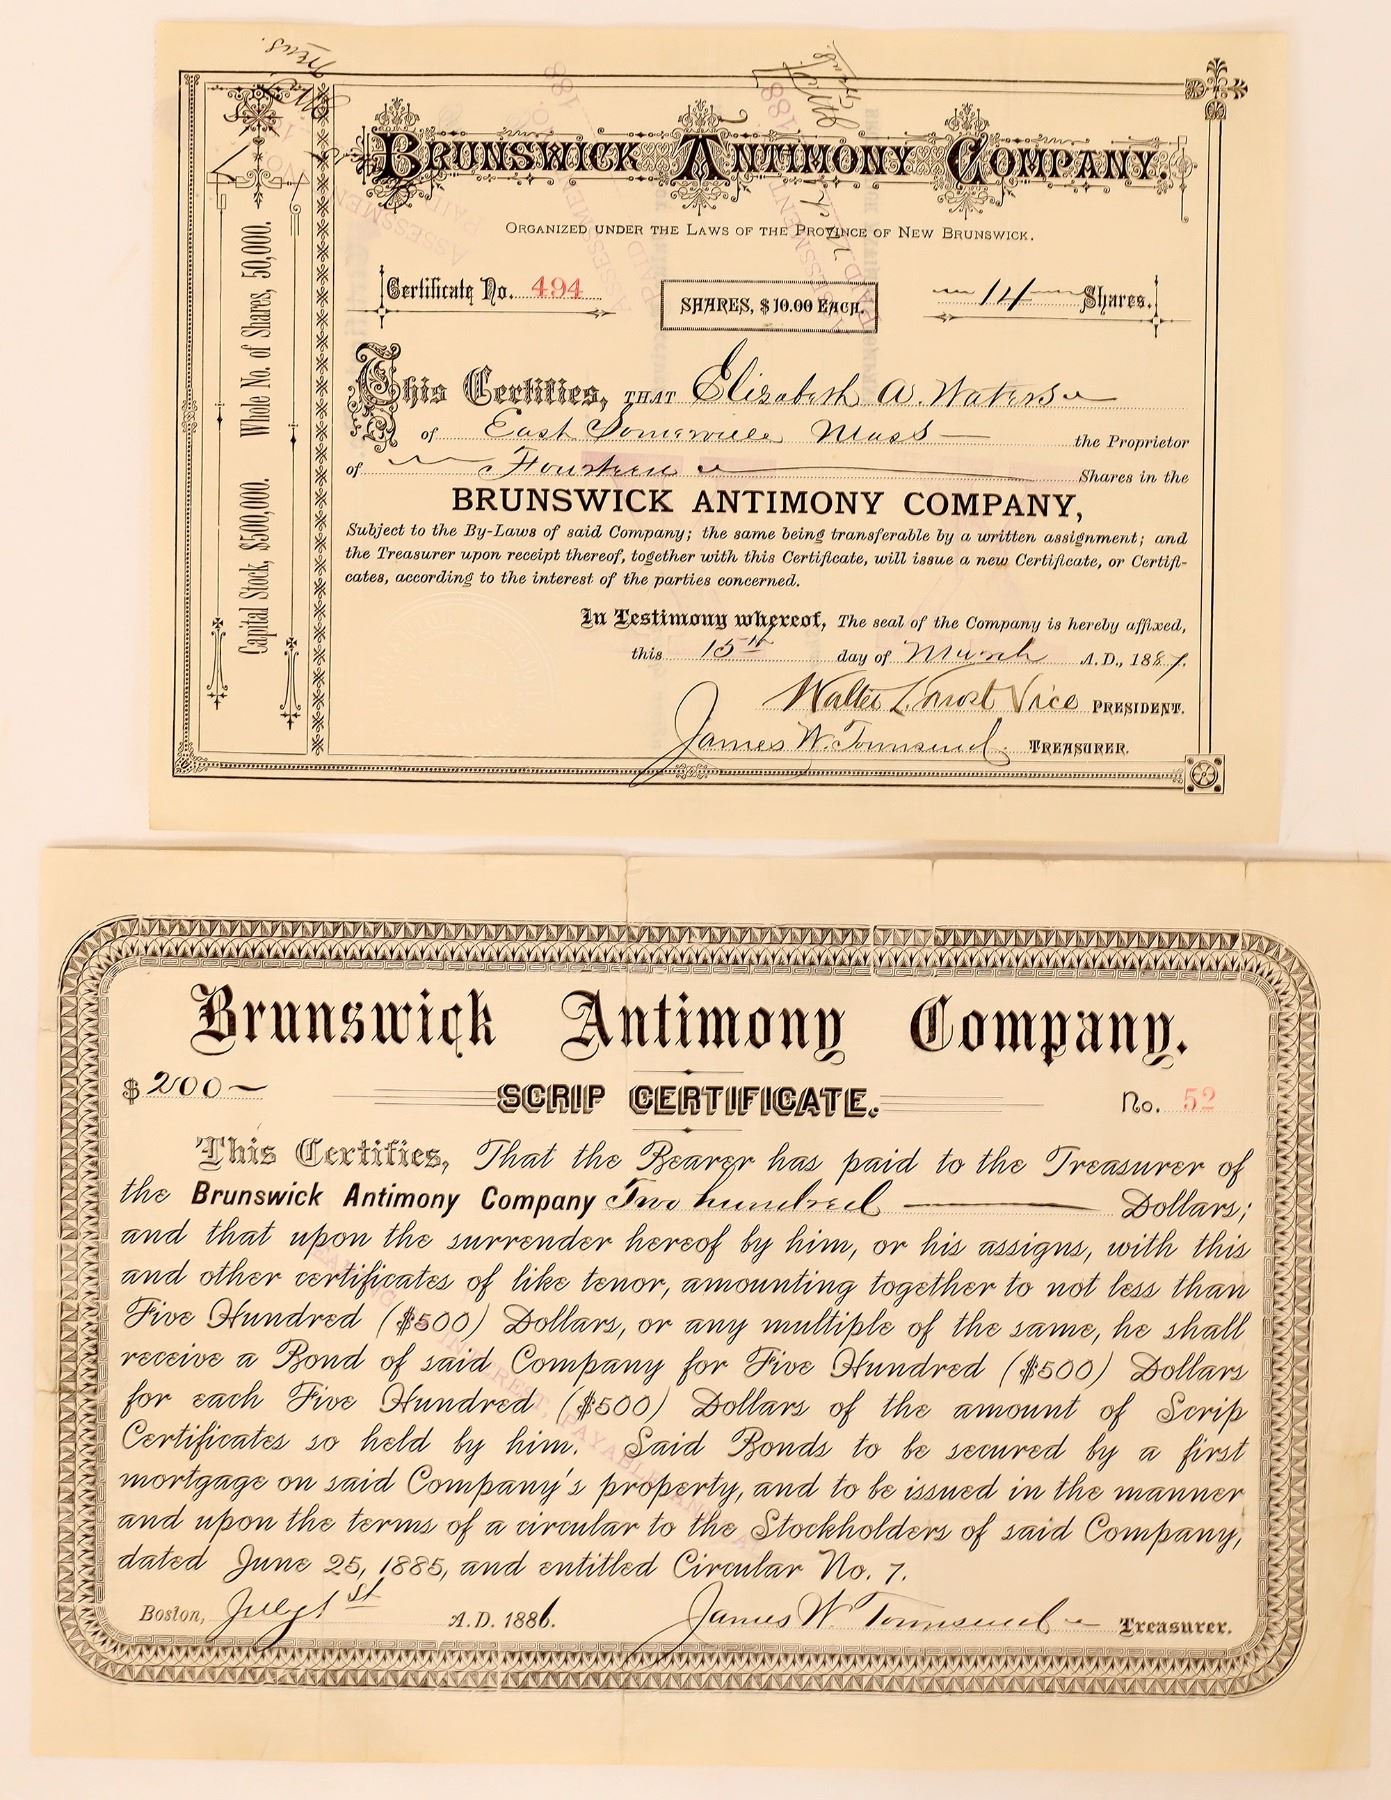 BRUNSWICK ANTIMONY COMPANY.
ORGANIZED UNDER THE LAWS OF THE PROVINCE OF NEW BRUNSWICK.
Certificate No. 494
SHARES, $10.00 EACH.
14 Shares.
Capital Stock, $500,000. Whole No. of Shares, 50,000.
This Certifies, THAT Elizabeth A. Waters
of East Somerville Mass the Proprietor
of Fourteen Shares in the
BRUNSWICK ANTIMONY COMPANY,
Subject to the By-Laws of said Company; the same being transferable by a written assignment; and
the Treasurer upon receipt thereof, together with this Certificate, will issue a new Certificate, or Certifi-
cates, according to the interest of the parties concerned.
In Testimony whereof, The seal of the Company is hereby affixed,
this 15th day of March A.D., 1887.
Walter L. Frost Vice PRESIDENT.
James W. Townsend TREASURER.
Brunswick Antimony Company.
$200 SCRIP CERTIFICATE. No. 52
This Certifies, That the Bearer has paid to the Treasurer of
the Brunswick Antimony Company Two hundred Dollars;
and that upon the surrender hereof by him, or his assigns, with this
and other certificates of like tenor, amounting together to not less than
Five Hundred ($500) Dollars, or any multiple of the same, he shall
receive a Bond of said Company for Five Hundred ($500) Dollars
for each Five Hundred ($500) Dollars of the amount of Scrip
Certificates so held by him. Said Bonds to be secured by a first
mortgage on said Company's property, and to be issued in the manner
and upon the terms of a circular to the Stockholders of said Company,
dated June 25, 1885, and entitled Circular No. 7.
Boston, July 1st A.D. 1886. James W. Townsend Treasurer.